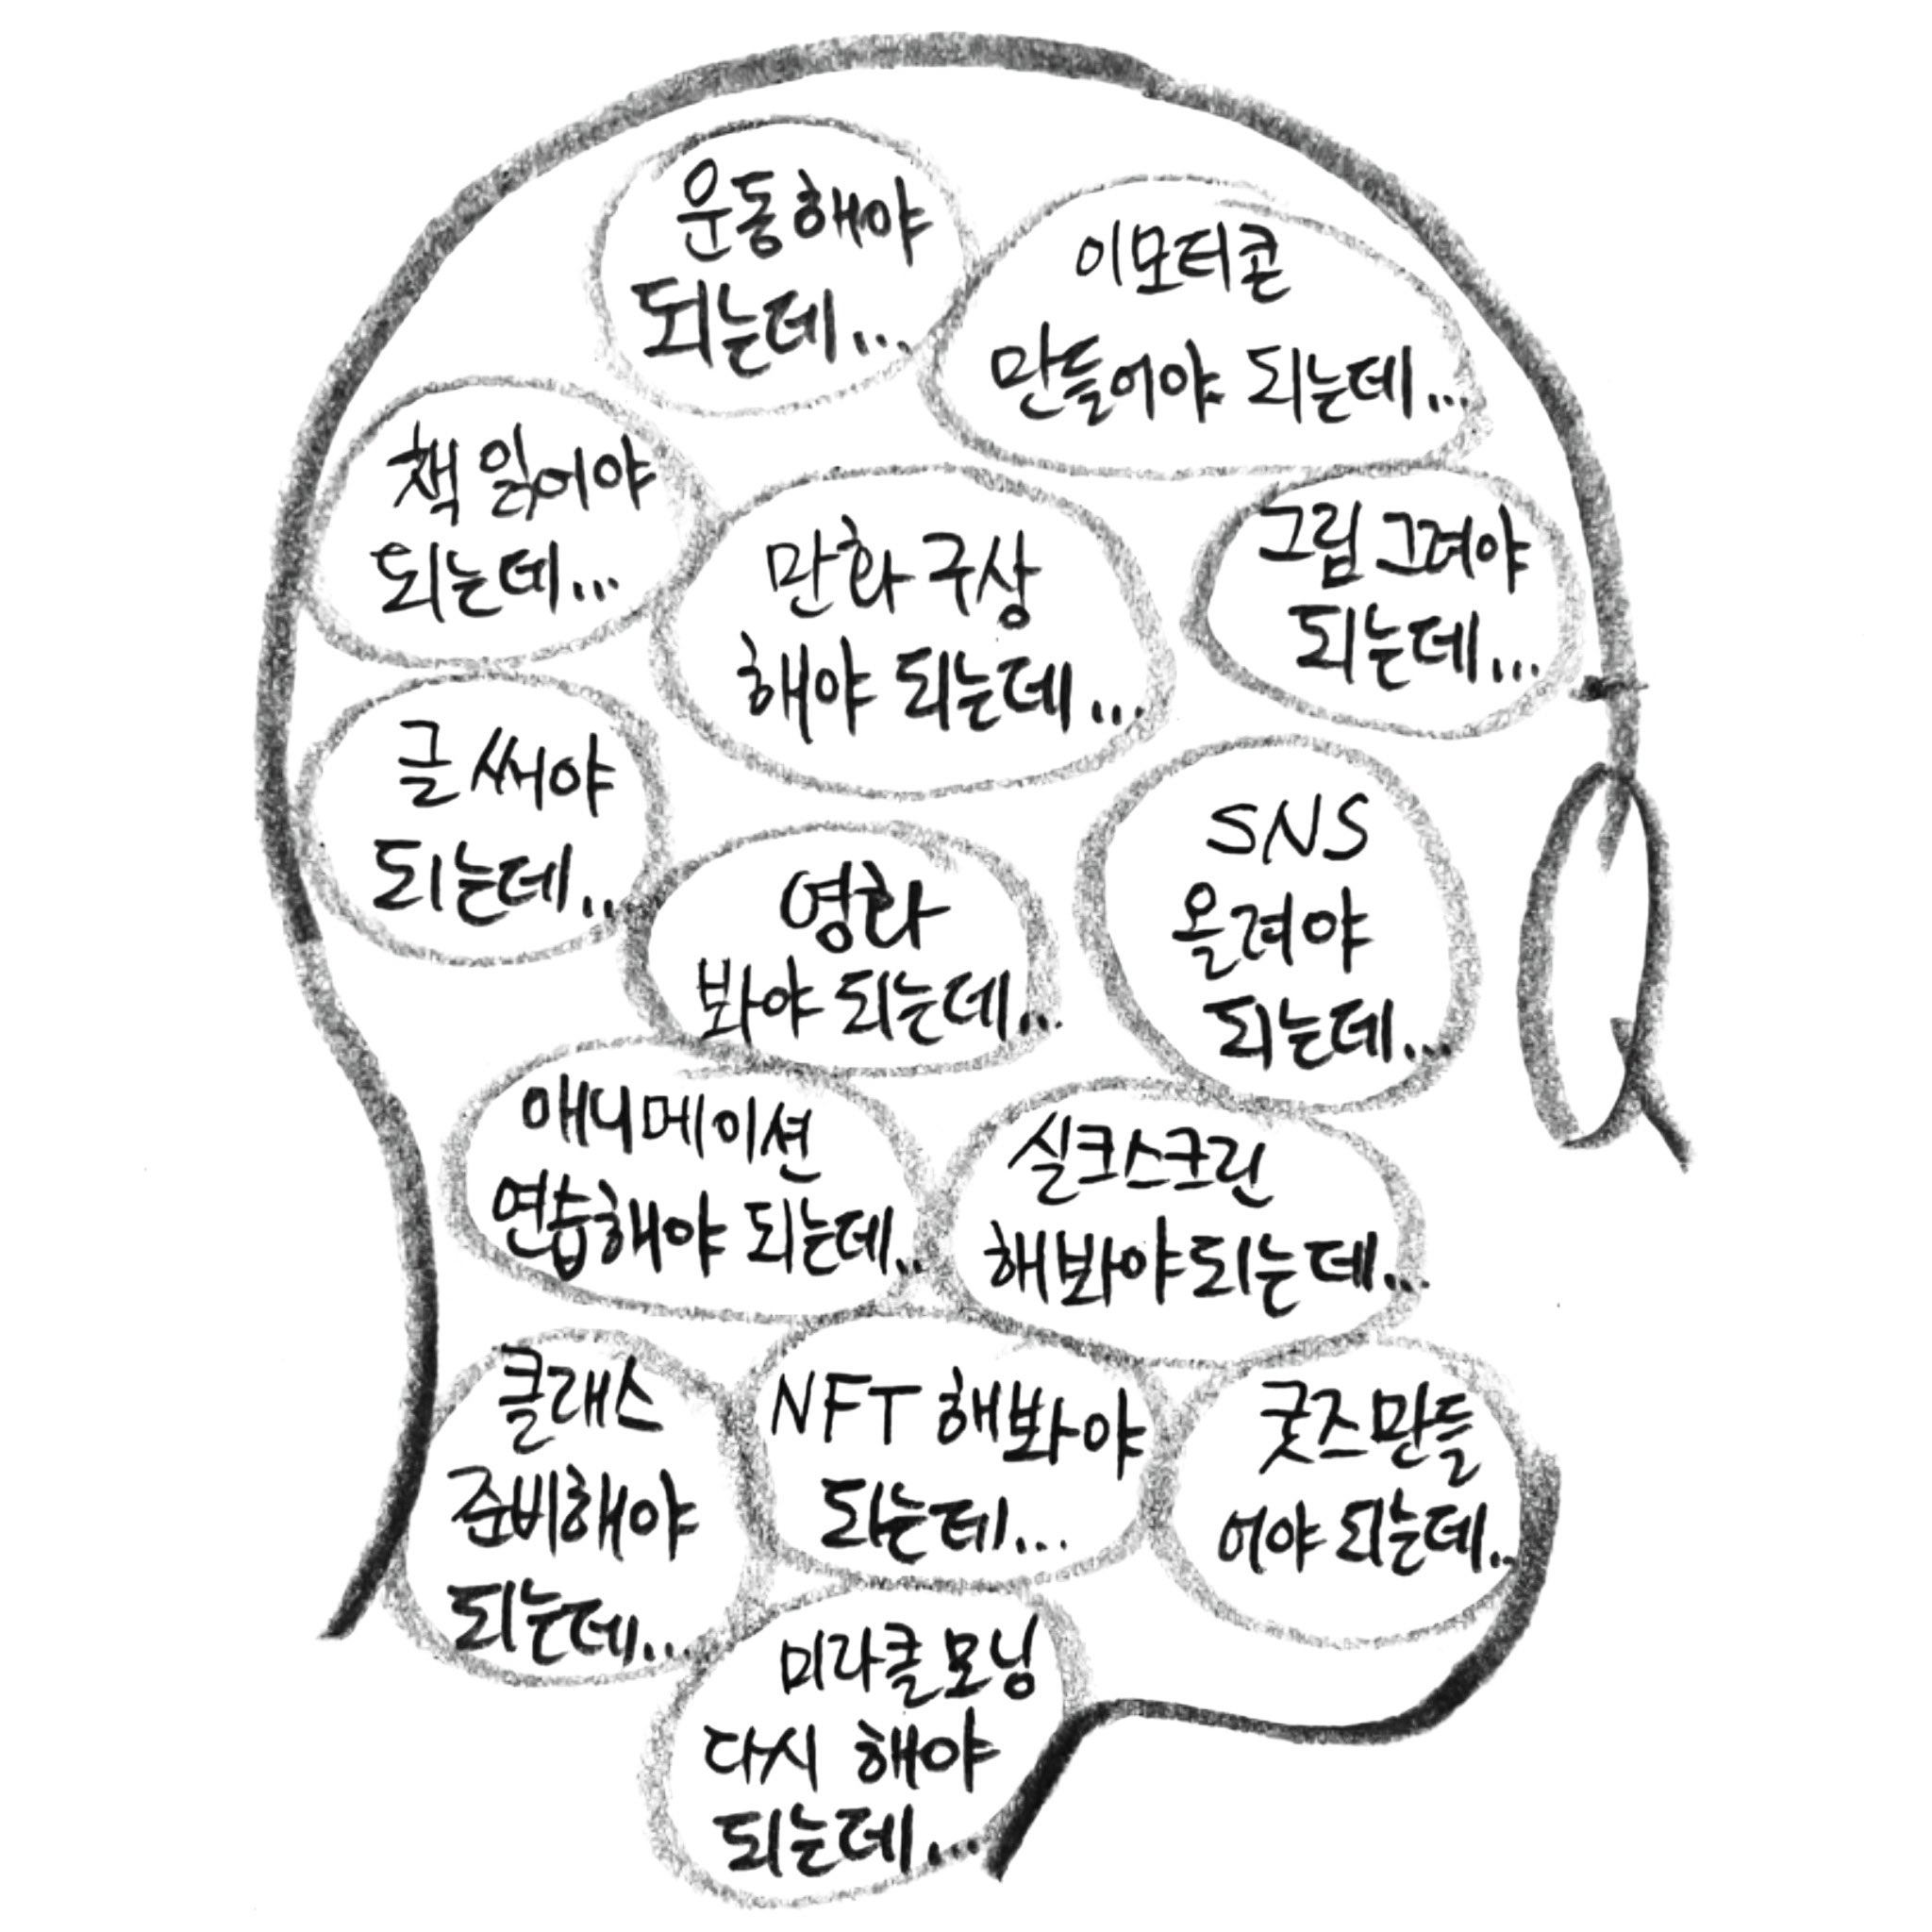 운동해야
되는데...
이모티콘
만들어야 되는데...
책 읽어야
되는데...
만화 구상
해야 되는데...
그림 그려야
되는데...
글 써야
되는데...
영화
봐야 되는데...
SNS
올려야
되는데...
애니메이션
연습해야 되는데..
실크스크린
해봐야되는데...
클래스
준비해야
되는데...
NFT 해봐야
되는데...
굿즈만들
어야 되는데..
미라클모닝
다시 해야
되는데...